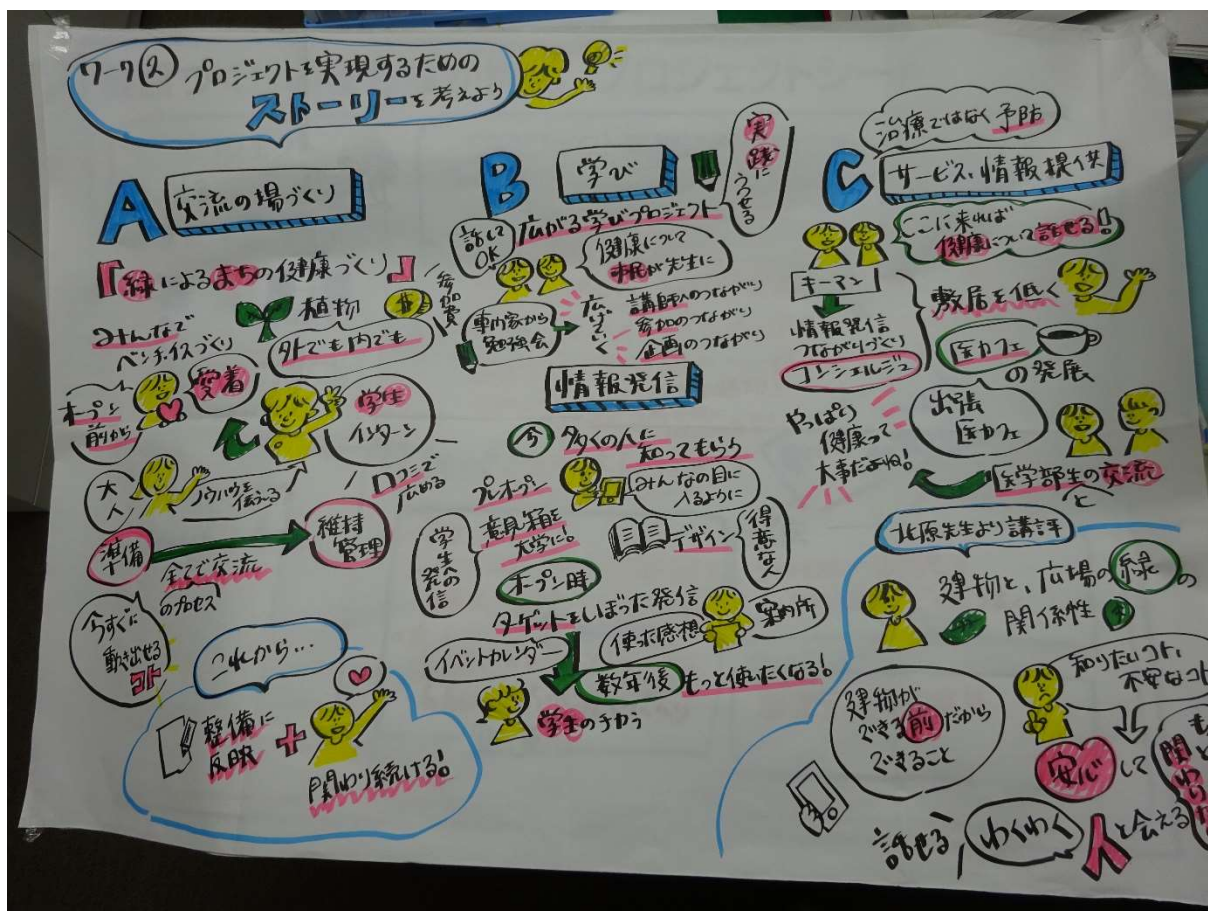 ワーク② プロジェクトを実現するための
ストーリーを考えよう
A 交流の場づくり
『緑によるまちの健康づくり』
みんなで
ベンチ、イスづくり
植物
参加費
外でも内でも
オープン
前から
愛着
学生
インターン
大人
ノウハウを伝える
口コミで
広める
準備
維持
管理
全てで交流
のプロセス
今すぐに
動き出せる
コト
これから…
整備に
反映
+
関わり続ける!
B 学び
実践に
うつせる
広がる学びプロジェクト
話して
OK
健康について
市民が先生に
専門家から
勉強会
広げていく
講師へのつながり
参加のつながり
企画のつながり
情報発信
今 多くの人に
知ってもらう
プレオープン
みんなの目に
入るように
意見箱を
大学に。
学生への発信
デザイン
得意な人
オープン時
ターゲットをしぼった発信
使った感想
案内所
イベントカレンダー
数年後 もっと使いたくなる!
学生のチカラ
治療ではなく予防
C サービス、情報提供
ここに来れば
健康について話せる!
キーマン
情報発信
つながりづくり
コンシェルジュ
敷居を低く
医カフェ
の発展
出張
医カフェ
やっぱり
健康って
大事だよね!
医学部生の交流
と
北原先生より講評
建物と、広場の緑の
関係性
建物が
できる前だから
できること
知りたいコト、
不安なコト
安心して
話せる
わくわく
人と会える